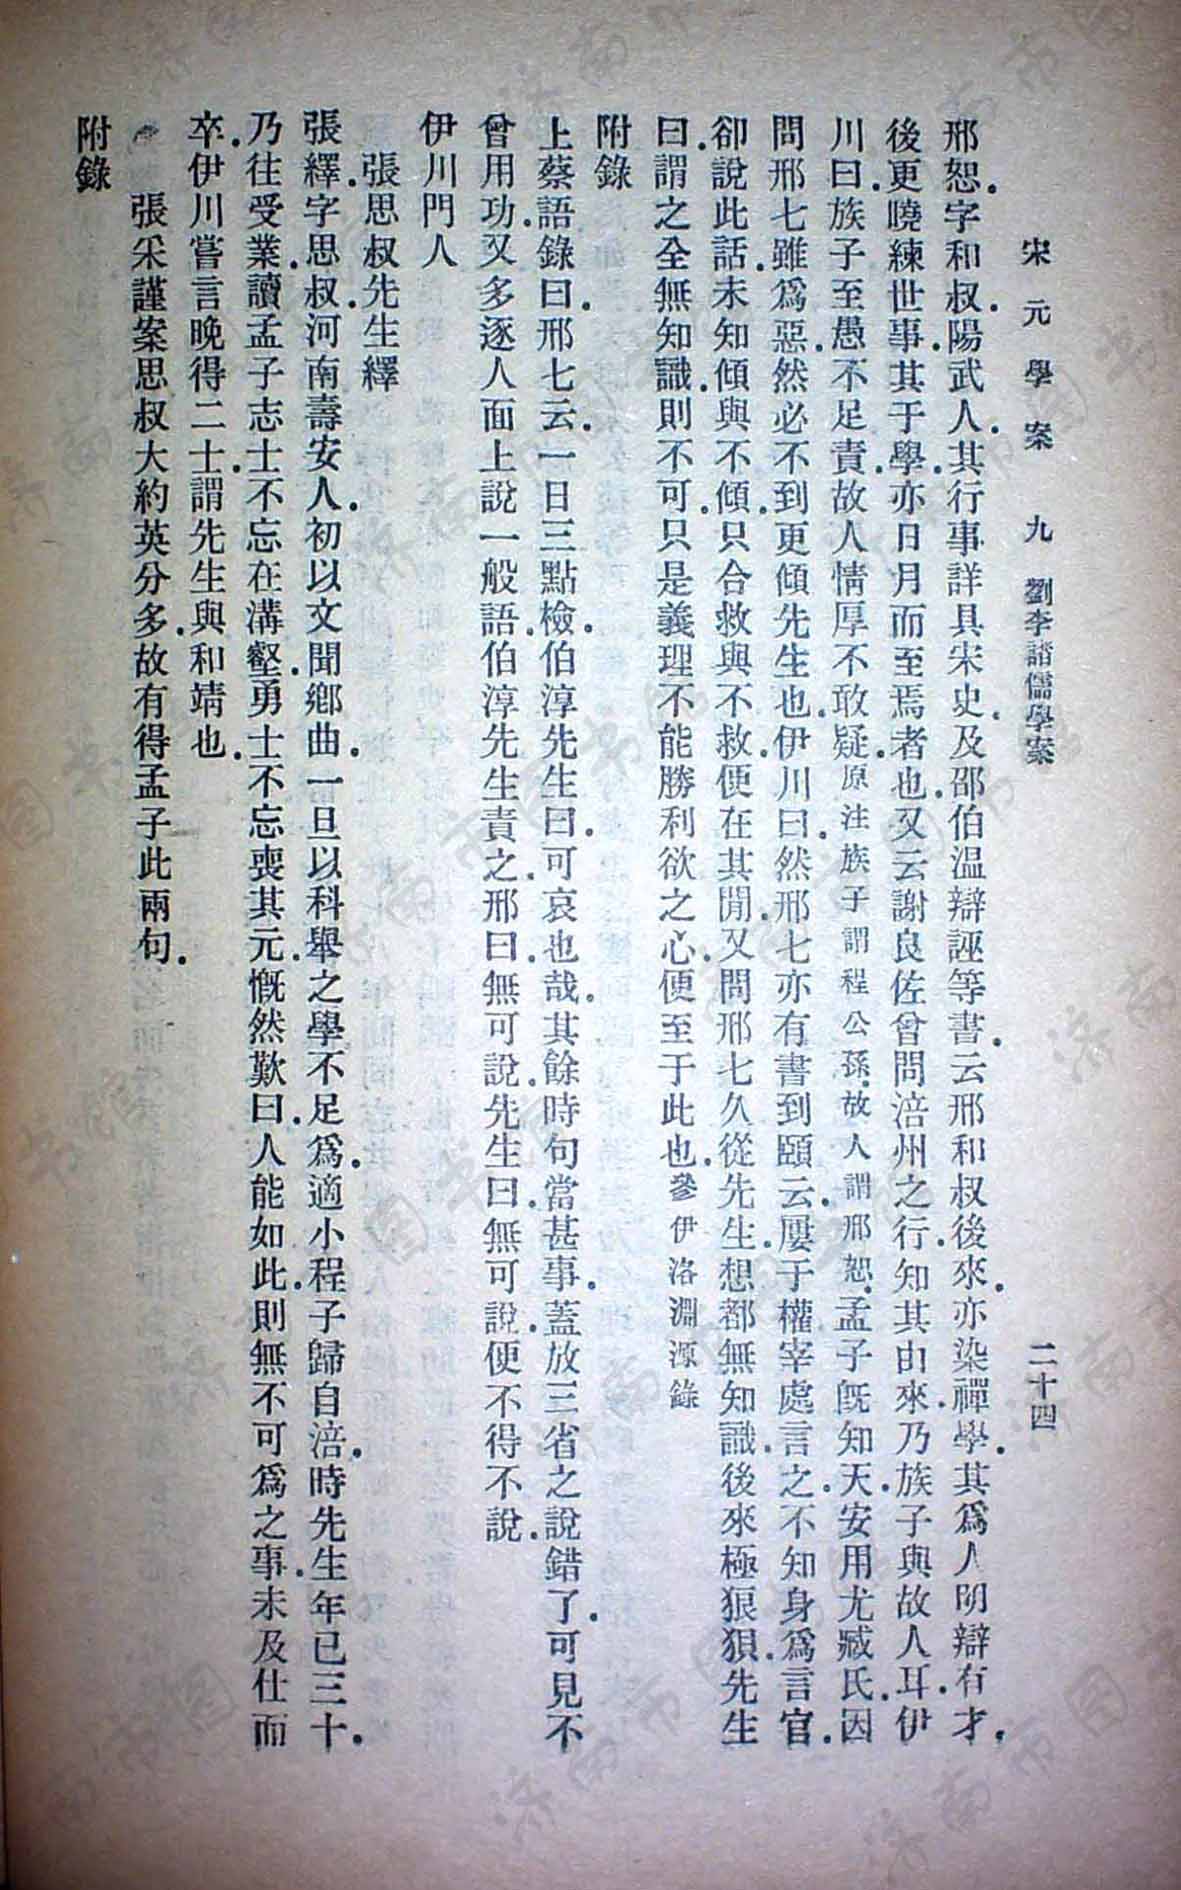 宋元學案　九　劉李諸儒學案　二十四
邢恕.字和叔.陽武人.其行事詳具宋史.及邵伯溫辯誣等書.云邢和叔後來.亦染禪學.其爲人明辯有才.
後更曉練世事.其于學.亦日月而至焉者也.又云謝良佐曾問涪州之行.知其由來乃族子與故人耳.伊
川曰.族子至愚.不足責.故人情厚.不敢疑.原注族子謂程公孫.故人謂邢恕.孟子既知天.安用尤臧氏.因
問邢七雖爲惡.然必不到更傾先生也.伊川曰.然邢七亦有書到頤云.屢于權宰處言之.不知身爲言官.
卻說此話.未知傾與不傾.只合救與不救.便在其閒.又問邢七久從先生.想都無知識.後來極狼狽.先生
曰.謂之全無知識.則不可.只是義理不能勝利欲之心.便至于此也.參伊洛淵源錄
附錄
上蔡語錄曰.邢七云.一日三點檢.伯淳先生曰.可哀也哉.其餘時句當甚事.蓋放三省之說錯了.可見不
曾用功.又多逐人面上說一般語.伯淳先生責之.邢曰.無可說.先生曰.無可說.便不得不說.
伊川門人
張思叔先生繹
張繹.字思叔.河南壽安人.初以文聞鄉曲.一旦以科舉之學不足爲.適小程子歸自涪.時先生年已三十.
乃往受業.讀孟子志士不忘在溝壑.勇士不忘喪其元.慨然歎曰.人能如此.則無不可爲之事.未及仕而
卒.伊川嘗言晚得二士.謂先生與和靖也.
張采謹案思叔大約英分多.故有得孟子此兩句.
附錄